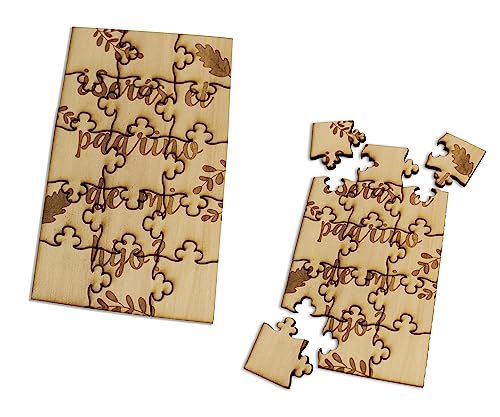 ¿Serás el
padrino
de mi
hijo?
¿Serás el
padrino
de mi
hijo?